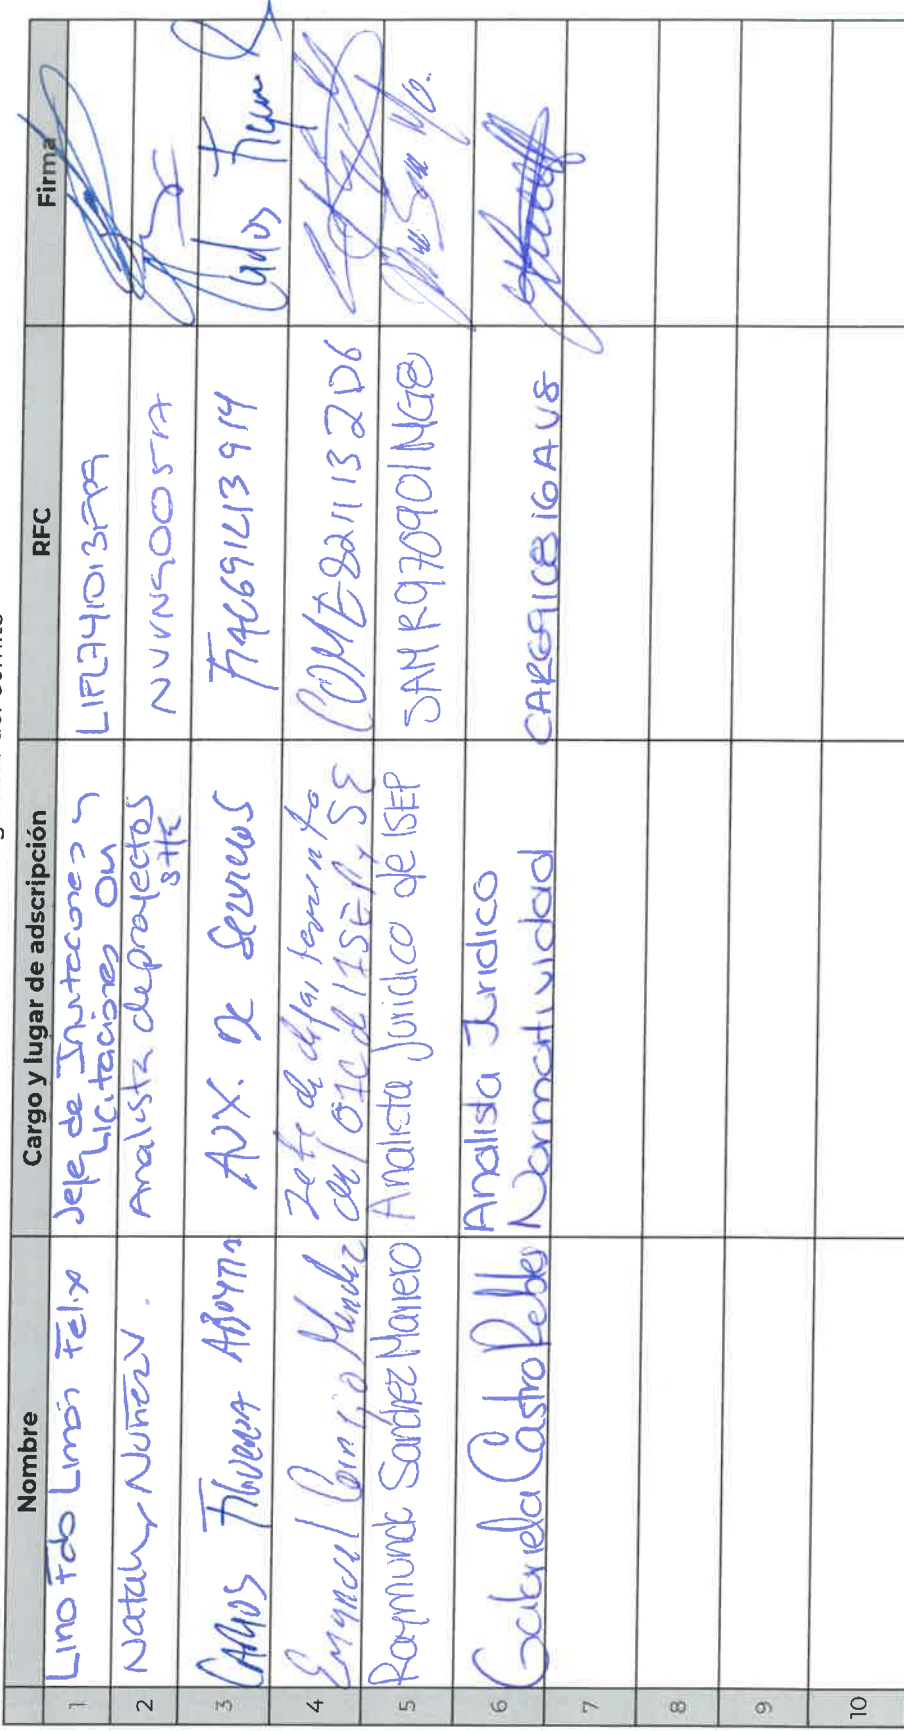 Nombre Cargo y lugar de adscripción RFC Firma
1 Lino Fdo Limón Felix Jefe de Invitaciones y
Licitaciones OM LIFL741013
2 Nataly Nuñez V. Analista de proyectos
3 Carlos Figueroa Aux. De Servicios Carlos
4 Emanuel Mendez Jefe de departamento
del OIC del ISEP y SE COME8211132D6
5 Raymundo Sanchez Marrero Analista Juridico de ISEP SAMR970901MG8
6 Gabriela Castro Robles Analista Juridico
Normatividad CARG910816AV8
7
8
9
10